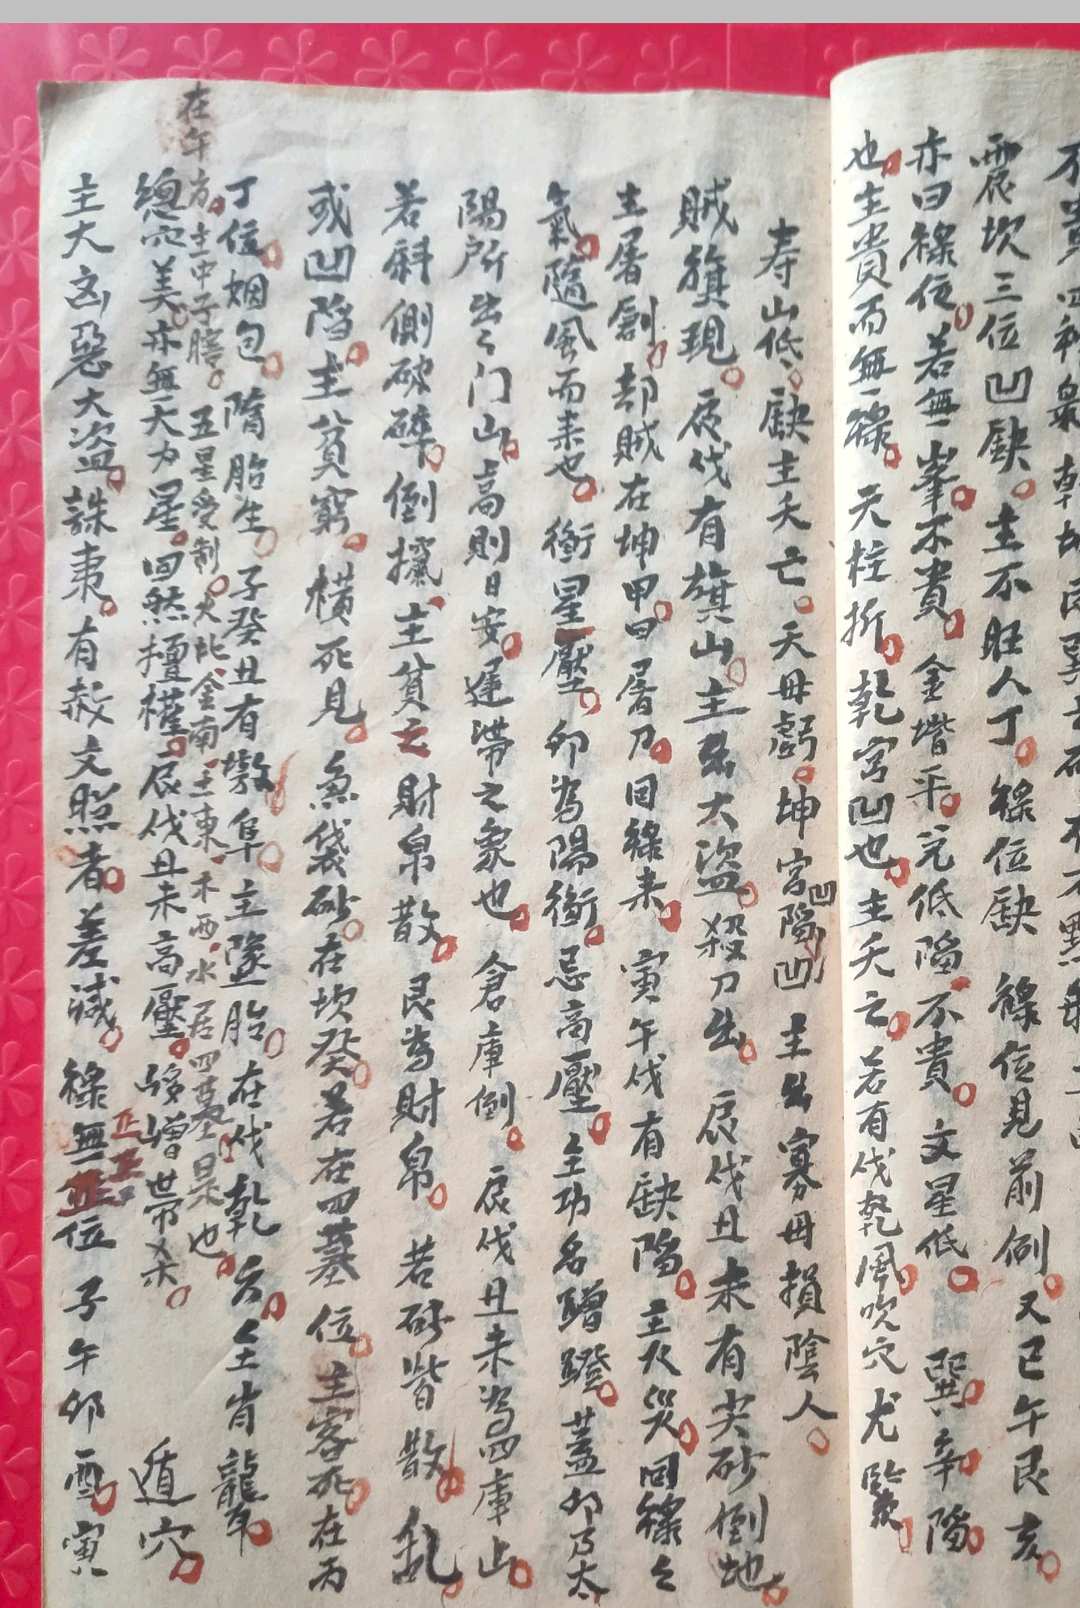 不貴四神
震坎三位凹缺主不旺人丁祿位缺祿位見前例又巳午艮亥
亦曰祿位若無一峯不貴金堦平兌低陷不貴文星低巽辛陷
也主貴而無祿天柱折乾宮凹也主夭亡若有戌乾風吹穴尤
寿山低缺主夭亡天母虧坤宮凹陷凹主出寡母損陰人
賊旗現辰戌有旗山主出大盜殺刀出辰戌丑未有尖砂倒地
主屠劊却賊在坤甲曰屠刀回祿來寅午戌有缺陷主火災回祿之
氣隨風而来也衝星壓卯为陽衝忌高壓主功名蹭蹬蓋卯乃太
陽所出之门山高則日晏運滯之象也倉庫倒辰戌丑未为四庫山
若斜側破碎倒攛主貧之財帛散艮为財帛若砂皆散乱
或凹陷主貧窮橫死見魚袋砂在坎癸若在四墓位主客死在丙
丁位烟包墮胎生子癸丑有墩阜主墜胎在戌乾亥主肖龍
在午方主中子瞎五星受制火北金南土東木西水居四墓是也
總穴美亦無大力星回然擅權辰戌丑未高壓增帶杀遁穴
主大凶惡大盜誅夷有赦文照者差減祿無正位子午卯酉寅